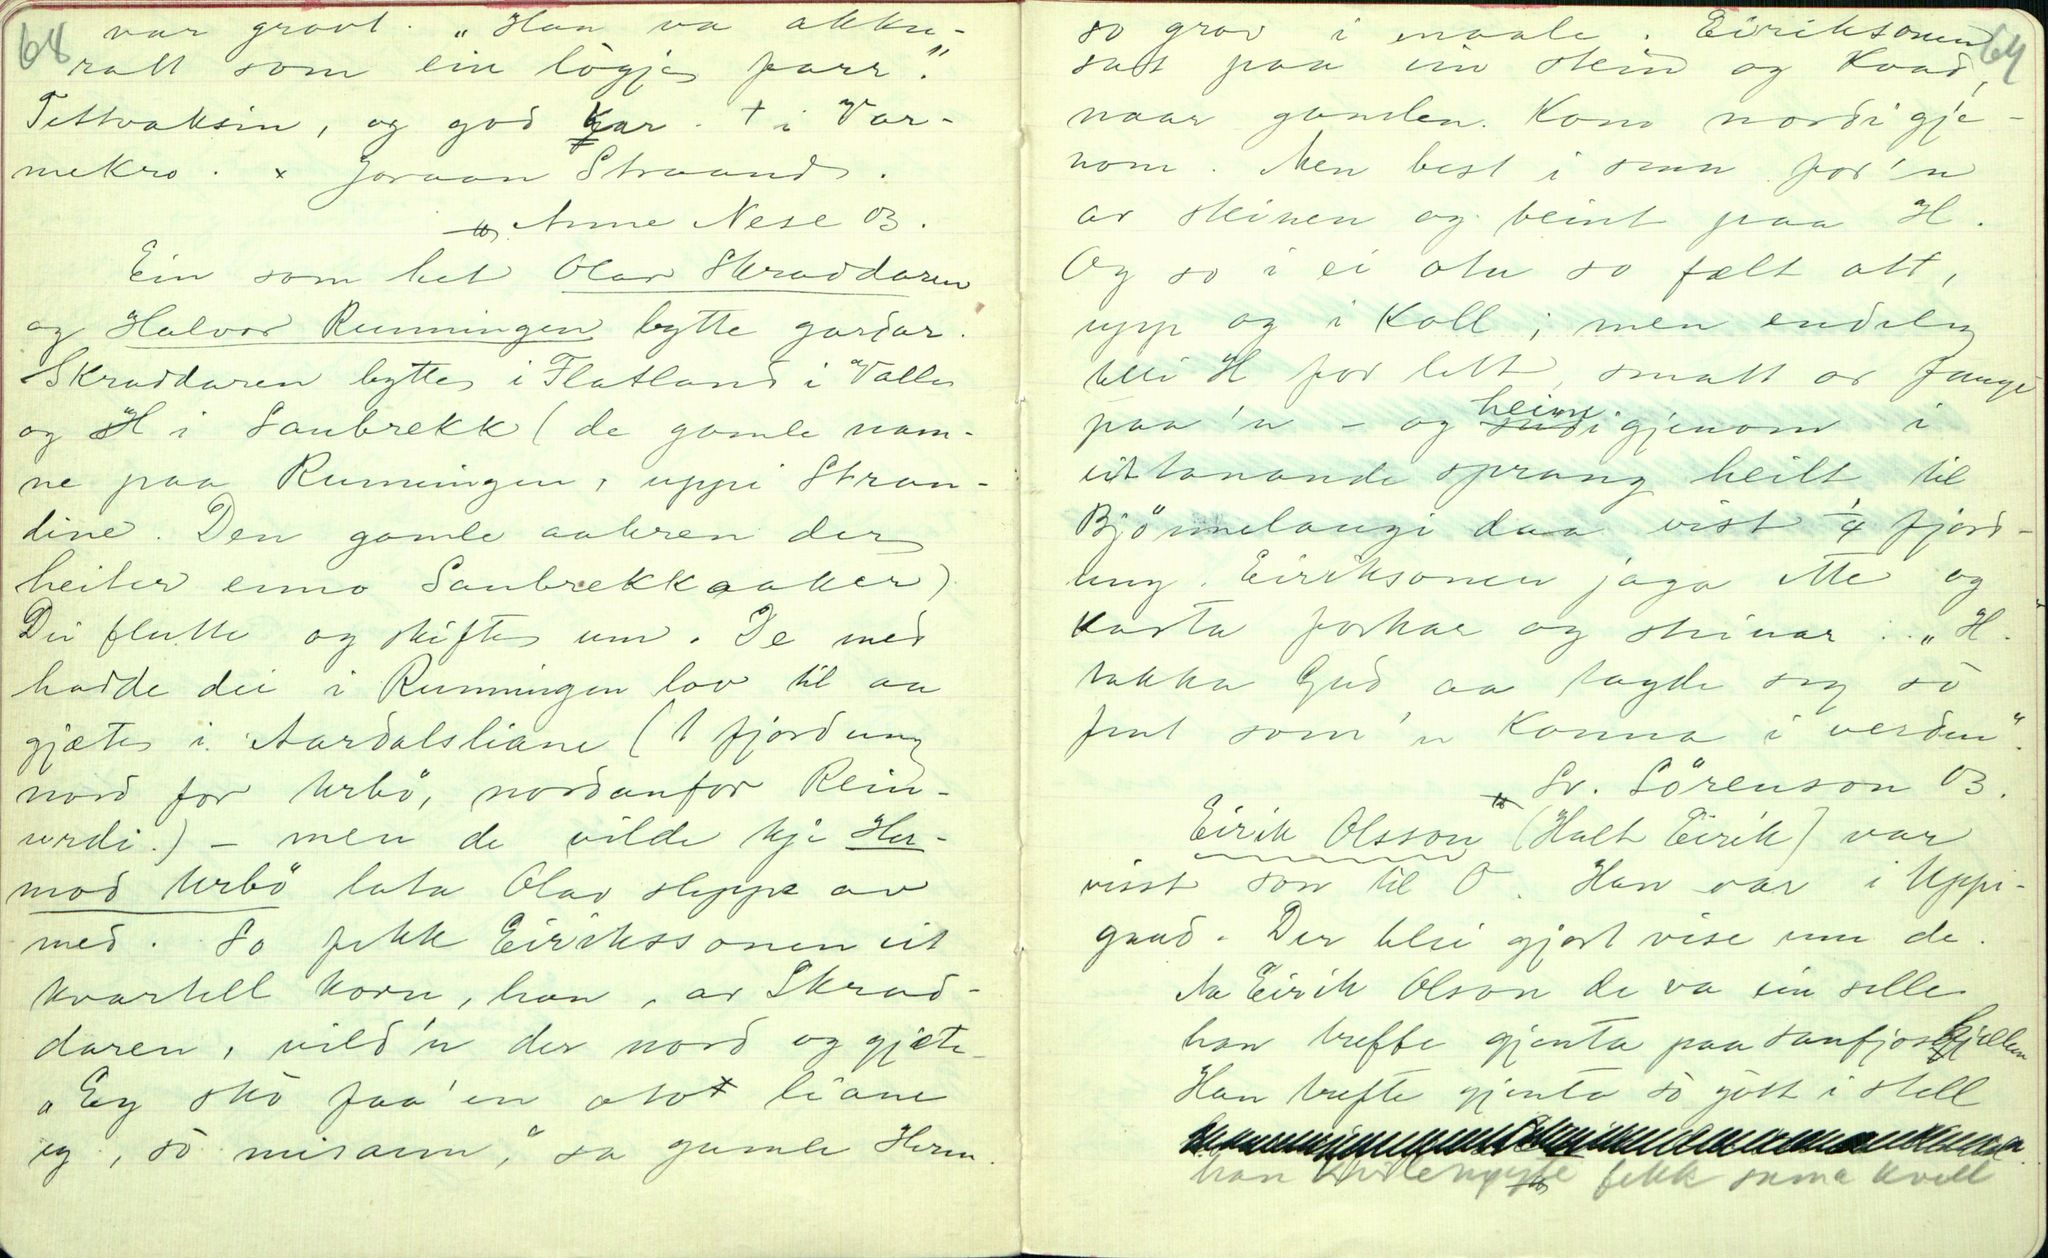 68
var grovt. "Han va akku-
ratt som ein lögjes parr".
Tettvaksin, og god kar. + i Var-
mekro. x Joraan Straand.
Anne Nese 03.
Ein som het Olav Skraddaren
og Halvor Runningen bytte gardar.
Skraddaren bytte i Flatland i Valle
og H i Saubrekk (de gamle nam-
ne paa Runningen, uppi Stran-
dine. Den gamle aakren der
heiter enno Saubrekkaaker)
Dei flutte og skifte um. De med
hadde dei i Runningen lov til aa
gjæte i Aardalsliane (1 fjordung
nord for Urbö, nordanfor Rein-
urdi.) - men de vilde kje Her-
mod Urbö lata Olav sleppe av
med. So fekk Eirikssonen eit
kvartell korn, han, av Skrad-
daren, vild'n der nord og gjæte.
"Eg skö faa 'en otor liane
eg, sö misann," sa gamle Herm.
64
so grov i maale. Eiriksonen
sat paa ein stein og kvad,
naar gamlen kom nordigje-
nom. Men best i senn for'n
av steinen og beint paa H.
Og so i ei otu so fælt att,
upp og i koll; men endeleg
blei H for lett, smatt or fangji
paa'n - og heimigjenom i
eit tanande sprang heilt til
Björnnelaugi daa vist 1/4 fjord-
ung. Eiriksonen jaga ette og
kasta forkar og steinar. "H.
takka Gud aa lagde seg sö
fort som'n konna i verden".
Sv. Sörenson 03.
Eirik Olsson (Halt Eirik) var
visst son til O. Han var i Uppi-
gard. Der blei gjort vise um de.
Aa Eirik Olson de va ein selle
han treffte gjenta paa saufjosfjellen
Han trefte gjenta sö gött i stell
han fekk sama kvell